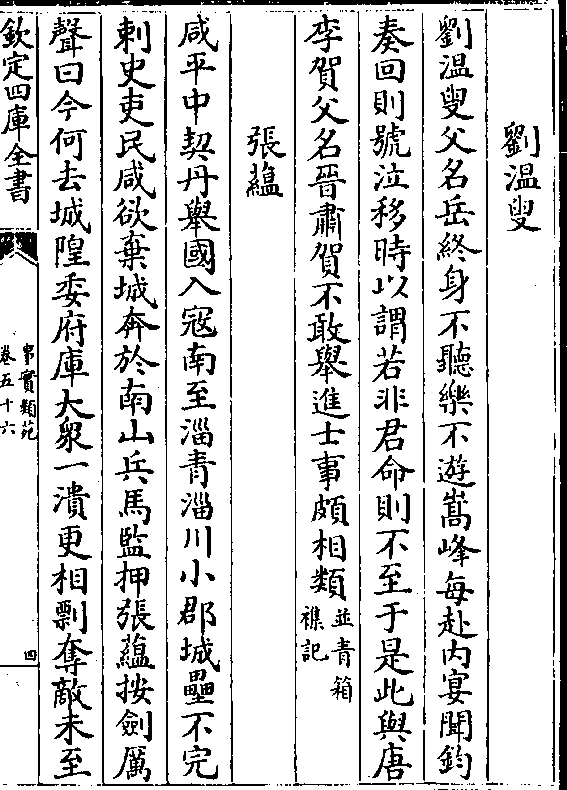 劉溫叟
劉溫叟父名岳終身不聽樂不遊嵩峰每赴内宴聞鈞
奏回則號泣移時以謂若非君命則不至于是此與唐
李賀父名晉肅賀不敢舉進士事頗相類並青箱襍記
張蘊
咸平中契丹舉國入寇南至淄青淄川小郡城壘不完
刺史吏民咸欲棄城奔於南山兵馬監押張蘊按劍厲
聲曰今何去城隍委府庫大衆一潰更相剽奪敵未至
欽定四庫全書
事實類苑
卷五十六
四